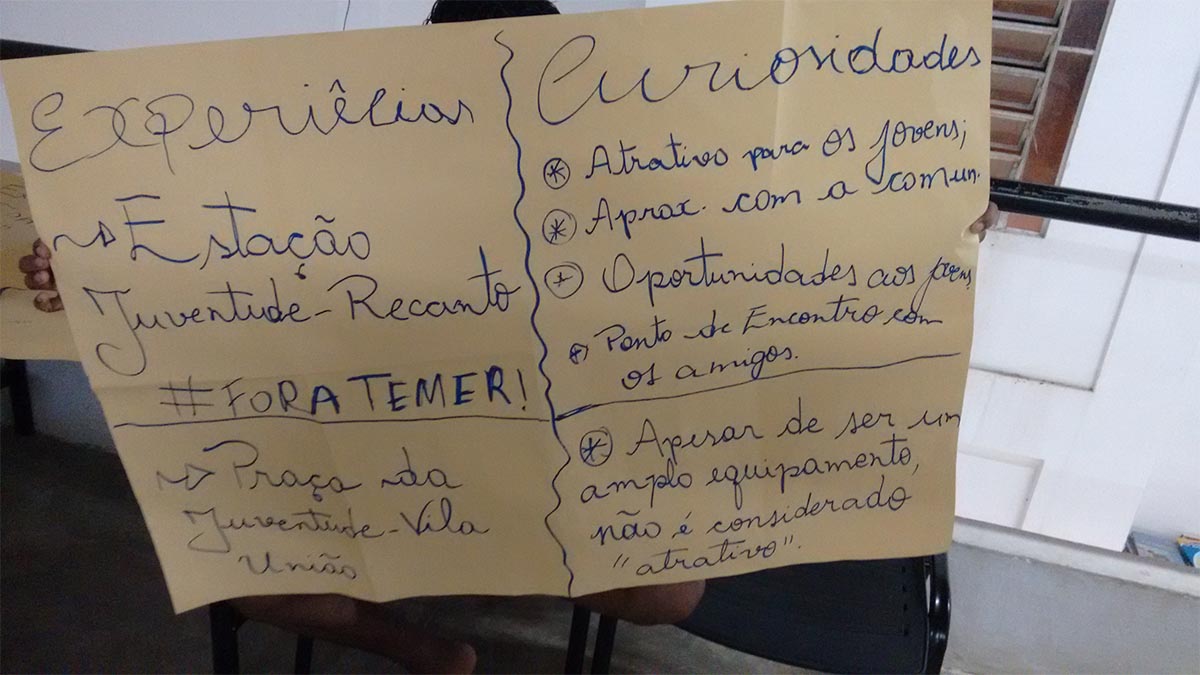 Experiêcias
Estação
Juventude-Recanto
#FORA TEMER!
Praça da
Juventude-Vila
União
Curiosidades
Atrativo para os jovens;
Aprox. com a comun.
Oportunidades aos jovens,
Ponto de Encontro com
os amigos.
Apesar de ser um
amplo equipamento,
não é considerado
"atrativo".